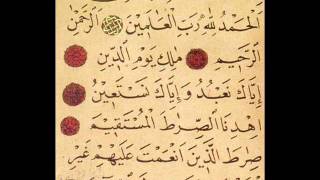 الْحَمْدُ لِلّٰهِ رَبِّ الْعَالَمِينَ الرَّحْمٰنِ
الرَّحِيمِ مٰلِكِ يَوْمِ الدِّينِ
إِيَّاكَ نَعْبُدُ وَإِيَّاكَ نَسْتَعِينُ
اهْدِنَا الصِّرَاطَ الْمُسْتَقِيمَ
صِرَاطَ الَّذِينَ أَنْعَمْتَ عَلَيْهِمْ غَيْرِ